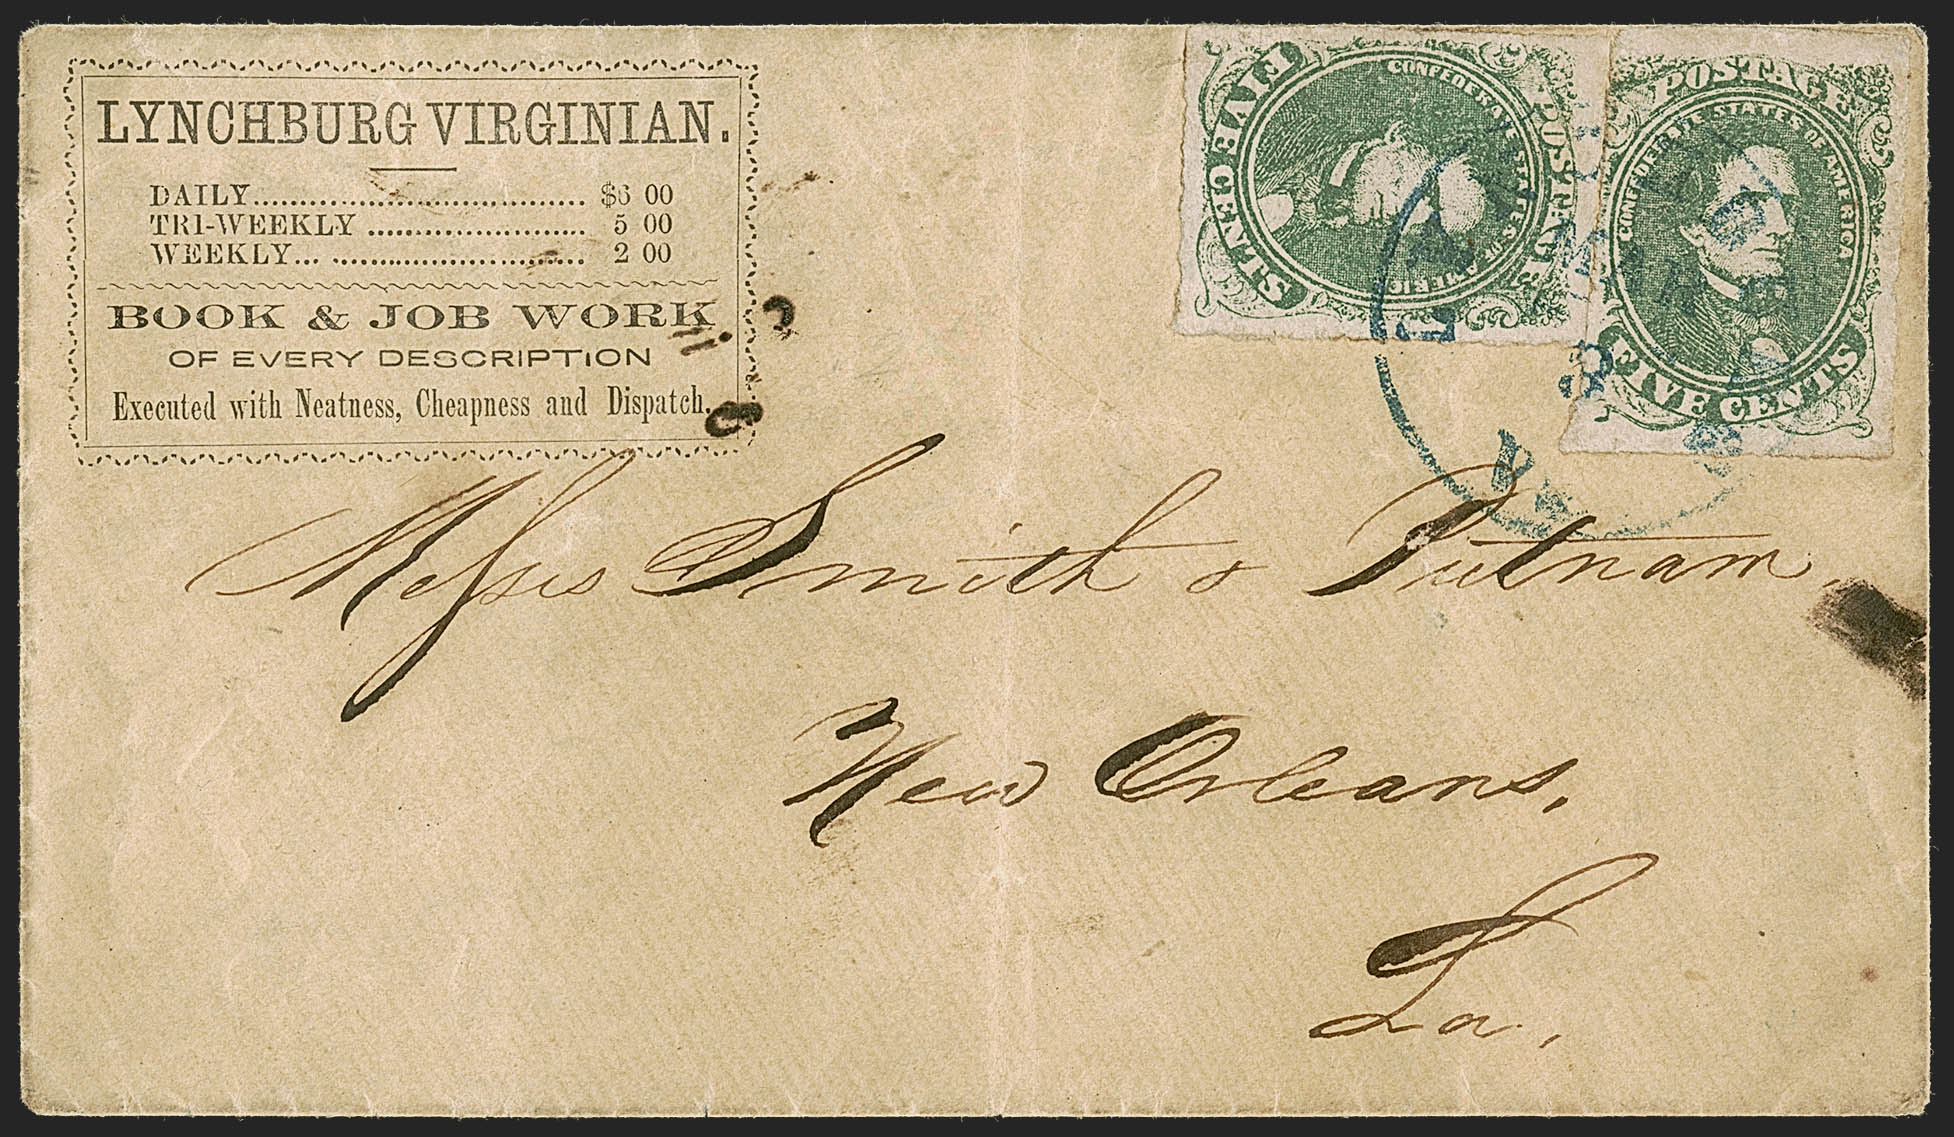 LYNCHBURG VIRGINIAN.
DAILY.................................... $6 00
TRI-WEEKLY ........................ 5 00
WEEKLY... ............................ 2 00
BOOK & JOB WORK
OF EVERY DESCRIPTION
Executed with Neatness, Cheapness and Dispatch.
FIVE CENTS
CONFEDERATE STATES OF AMERICA
POSTAGE
POSTAGE
CONFEDERATE STATES OF AMERICA
FIVE CENTS
MAR
8
VA
Messrs Smith & Putnam,
New Orleans,
La.